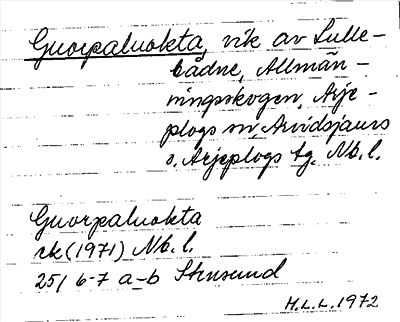 Guorpaluokta, vik av Lulle-
bådne, Allmän-
ningsskogen, Arje-
plogs sn, Arvidsjaurs
o. Arjeplogs tg. Nb. l.
Guorpaluokta
rk (1971) Nb. l.
25I 6-7 a-b Strusund
H.L.L. 1972